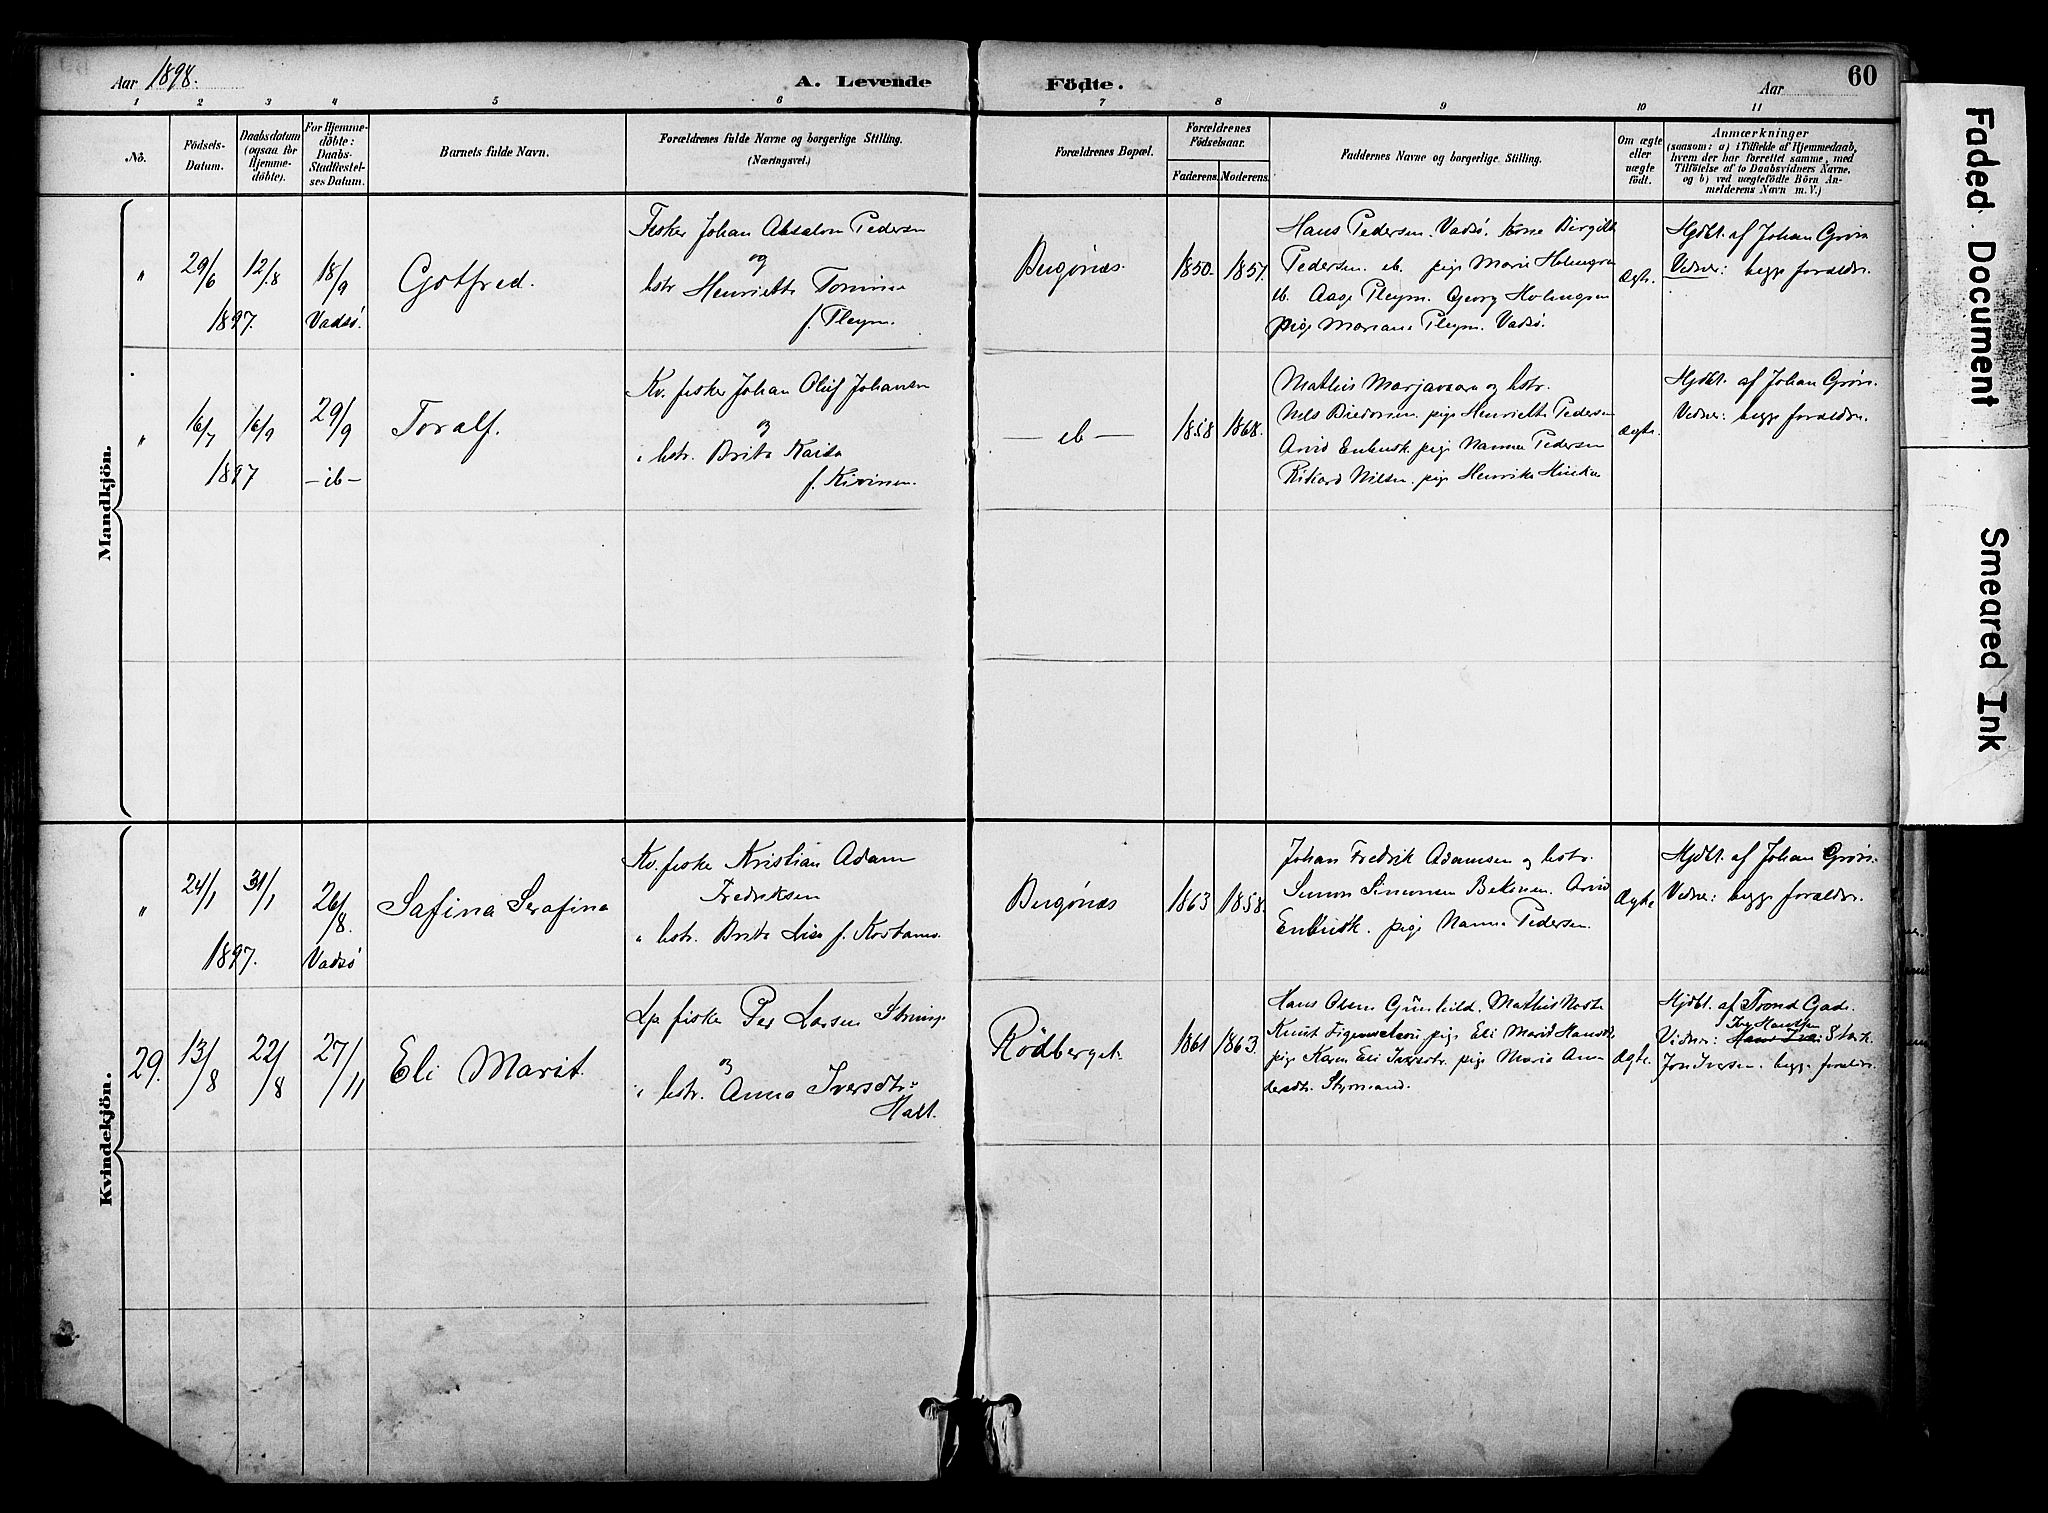 Aar 1898.
A. Levende
Födte.
Aar
60
1 2 3 4 5 6 7 8 9 10 11
No.
Födsels-
Datum.
Daabsdatum
(ogsaa for
Hjemme-
döbte).
For Hjemme-
döbte:
Daabs-
Stadfæstel-
ses Datum.
Barnets fulde Navn.
Forældrenes fulde Navne og borgerlige Stilling.
(Næringsvei.)
Forældrenes Bopæl.
Forældrenes
Födselsaar.
Faderens. Moderens.
Faddernes Navne og borgerlige Stilling.
Om ægte
eller
uægte
födt.
Anmærkninger
(saasom: a) i Tilfælde af Hjemmedaab,
hvem der har forrettet samme, med
Tilföielse af to Daabsvidners Navne,
og b) ved uægtefödte Börn An-
melderens Navn m. V.)
Mandkjön.
"
29/6
1897.
12/8
18/9
Vadsö.
Gotfred.
Fisker Johan Absalon Pedersen
og
hstr Henriette
f. Pleym.
Bugönæs.
1850.
1857.
Hans Pedersen. Vadsö. Kone Birgitte
Pedersen. ib. pige Marie Holmgren
ib. Aage Pleym. Georg Holmgren
pige Mariane Pleym. Vadsö.
Ægte.
Hjdbt. af Johan Grön
Vidner: begge foraldre.
"
16/7
1897
16/9
29/9
— ib —
Toralf.
Kv. fisker Johan Oluf Johansen
og
" hstr. Brita Kaisa
f. Kivinen.
— ib —
1858
1868.
Mathis Marjavaara og hstr.
Nels pige Henriette Pedersen
Arvid Enbusk. pige Nanna Pedersen
Rikard Nilsen. pige Henrika
Ægte.
Hjdbt. af Johan Grön.
Vidner: begge foraldre.
Kvindekjön.
"
24/1
1897.
31/1
26/8.
Vadsö
Safina Serafina
Kv. fisker Kristian Adam
Fredriksen
" hstr. Brita Lisa f. Kostamo.
Bugönæs
1863
1858.
Johan Fredrik Adamsen og hstr.
Simon Simonsen Bekinen. Arvid
Enbusk. pige Nanna Pedersen.
Ægte
Hjdbt. af Johan Grön.
Vidner: begge foraldre.
29.
13/8
22/8
27/11
Eli Marit.
Lp fisker Per Larsen
og
" hstr. Anna Iversdtr.
Halt.
Rödberget.
1861
1863.
Hans Olsen Mathis
Knut pige Eli Marit Hansdtr
pige Karen Eli Iversdtr. pige Marit An-
dersdtr. Styrmand.
Ægte.
Hjdbt. af Trond Gad.
Iver Hansen
Vidner: Stark
Jon Iversen. begge foraldre.
Faded Document Smeared Ink